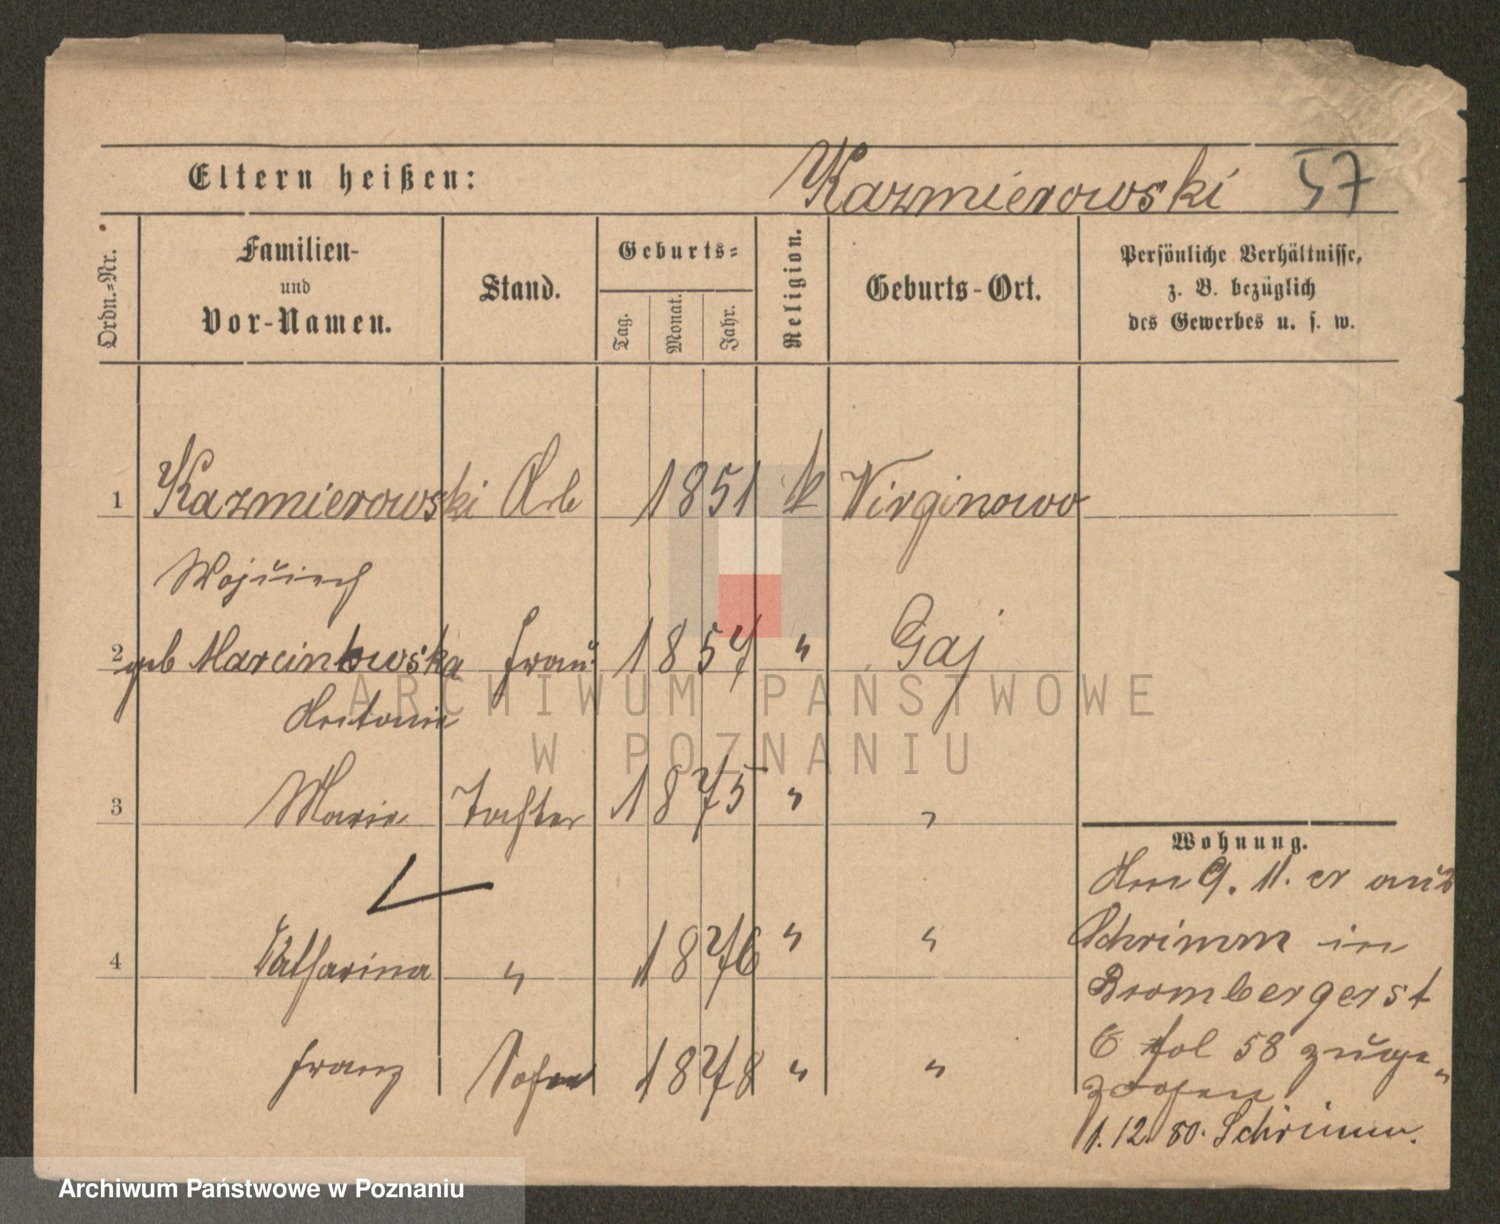 Eltern heißen: Kazmierowski 57
Ordn.-Nr.
Familien-
und
Vor-Namen.
Stand.
Geburts-
Tag. Monat. Jahr.
Religion.
Geburts-Ort.
Persönliche Verhältnisse,
z. B. bezüglich
des Gewerbes u. s. w.
1 Kazmierowski Arb 1851 k Virginowo
Wojciech
2 geb Marcinkowska Frau 1857 " Gaj
Antonie
ARCHIWUM PAŃSTWOWE
W POZNANIU
3 Marie Tochter 1875 " "
4 Catharina " 1876 " "
Franz Sohn 1878 " "
Wohnung.
Am 9. 11. er aus
Schrimm in
Brombergerst
6 fol 58 zuge„
zogen
1.12.80. Schrimm.
Archiwum Państwowe w Poznaniu